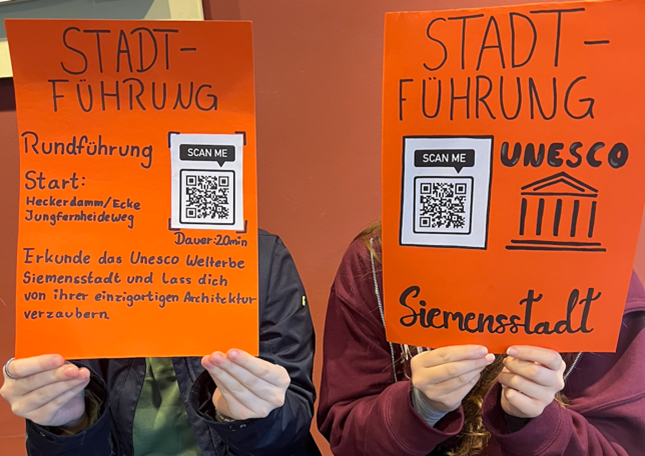 STADT-
FÜHRUNG
Rundführung
SCAN ME
Start:
Heckerdamm/Ecke
Jungfernheideweg
Dauer:20min
Erkunde das Unesco Welterbe
Siemensstadt und lass dich
von ihrer einzigartigen Architektur
verzaubern.
STADT-
FÜHRUNG
SCAN ME
UNESCO
Siemensstadt